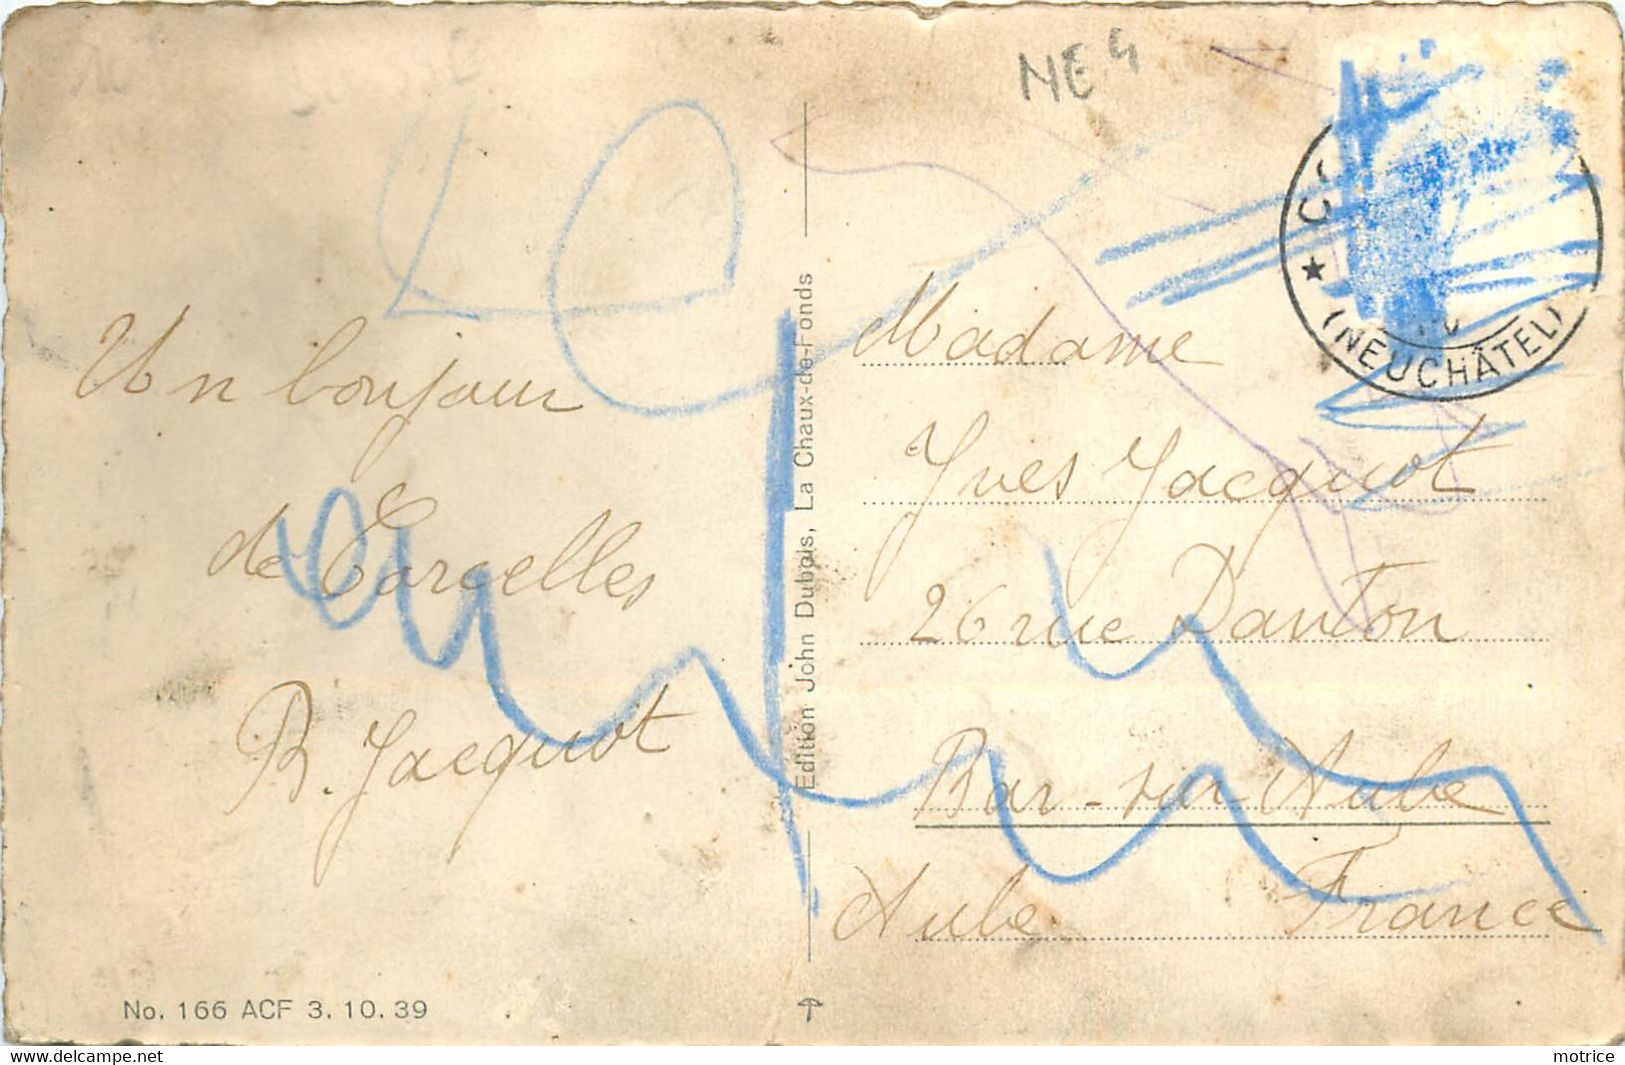 NE 4
(NEUCHÂTEL)
Un bonjour
de Corcelles
R. Jacquot
Edition John Dubois, La Chaux-de-Fonds
Madame
Yves Jacquot
26 rue Danton
Bar-sur-Aube
Aube France
No. 166 ACF 3. 10. 39
delcampe.net
motrice